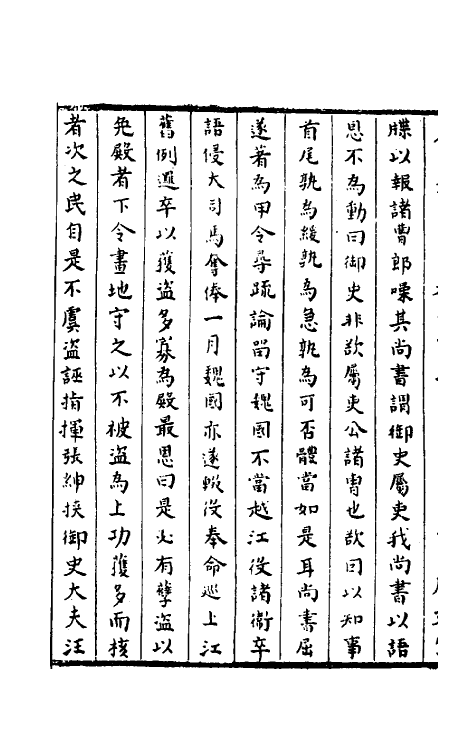 牒以報諸曹郎噪其尚書謂御史屬吏我尚書以語
恩不為動曰御史非欲屬吏公諸曹也欲曰以知事
首尾孰為緩孰為急孰為可否體當如是耳尚書屈
遂著為甲令尋疏論留守魏國不當越江役諸衛卒
語侵大司馬奪俸一月魏國亦遂輟役奉命巡上江
舊例邏卒以獲盜多寡為殿最恩曰是必有孽盜以
免殿者下令畫地守之以不被盜為上功獲多而核
者次之民自是不虞盜誣指揮張紳挨御史大夫汪